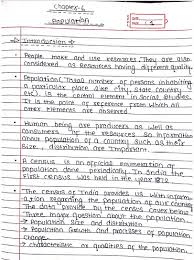 Chapter-6
Population
Introduction
• People make and use resources. They are also
considered as Resources having different quality.
• Population: Total number of persons inhabiting
a particular place like city, state, country
etc. is the central element in Social Studies.
It is the point of reference from which all
other elements are observed.
• Human being are producers as well as
consumers of the resources. So information
about population of a country such as their
Size, distribution are important.
• A census is an official enumeration of
population done periodically. In India the
first census was held in the year 1872
• The census of India provides us with
information regarding the population of our
The data provide by the census covers below
Three major question about the population.
→ Population size and distribution
→ Population Growth and processes of population
change.
→ characteristics or qualities of the population.